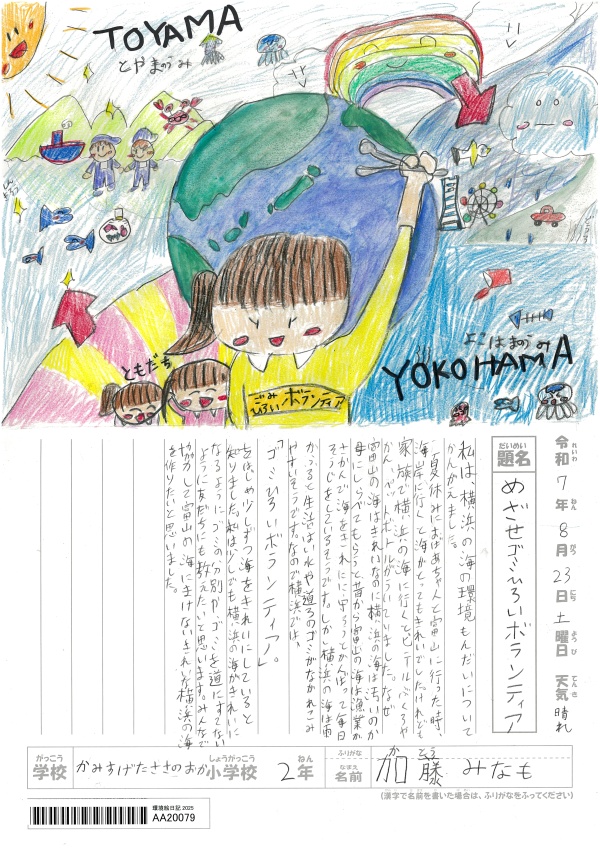 TOYAMA
とやまのうみ
よこはまのうみ
YOKOHAMA
ともだち
ごみひろいボランティア
令和7年8月23日土曜日 天気 晴れ
れいわ ねん がつ にち ようび てんき
だいめい
題名
めざせゴミひろいボランティア
私は、横浜の海の環境もんだいについて
かんがえました。
夏休みにおばあちゃんと富山に行った時、
海岸に行くと海がとてもきれいでしたけれども
家族で横浜の海に行くとビニールぶくろや
かん、ペットボトルがういていました。なぜ
富山の海はきれいなのに横浜の海は汚いのか
母にしらべてもらうと昔から富山の海は漁業が
さかんで海をきれいに守ろうとがんばって毎日
そうじをしているそうです。しかし横浜の海は雨
がふると生活はい水や道ろのゴミがながれこみ
やすいそうです。なので横浜では、
「ゴミひろいボランティア」。
をはじめ少しずつ海をきれいにしていると
知りました。私は少しでも横浜の海がきれいに
なるようにゴミの分別やゴミを道にすてない
ようにお友だちにも教えたいと思います。みんなで
協力して富山の海にまけないきれいな横浜の海
を作りたいと思いました。
がっこう しょうがっこう ねん ふりがな かとう
学校 かみすげたささのおか小学校 2年 名前 加藤 みなも
なまえ
(漢字で名前を書いた場合は、ふりがなをふってください)
環境絵日記2025
AA20079